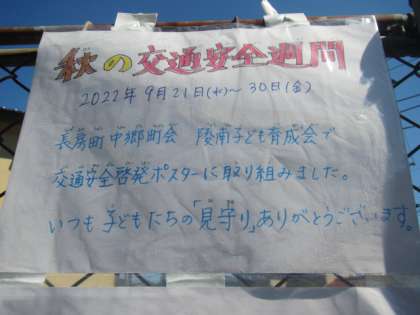 秋の交通安全週間
2022年9月21日(水)~30日(金)
長房町中郷町会 陵南子ども育成会で
交通安全啓発ポスターに取り組みました。
いつも子どもたちの「見守り」ありがとうございます。